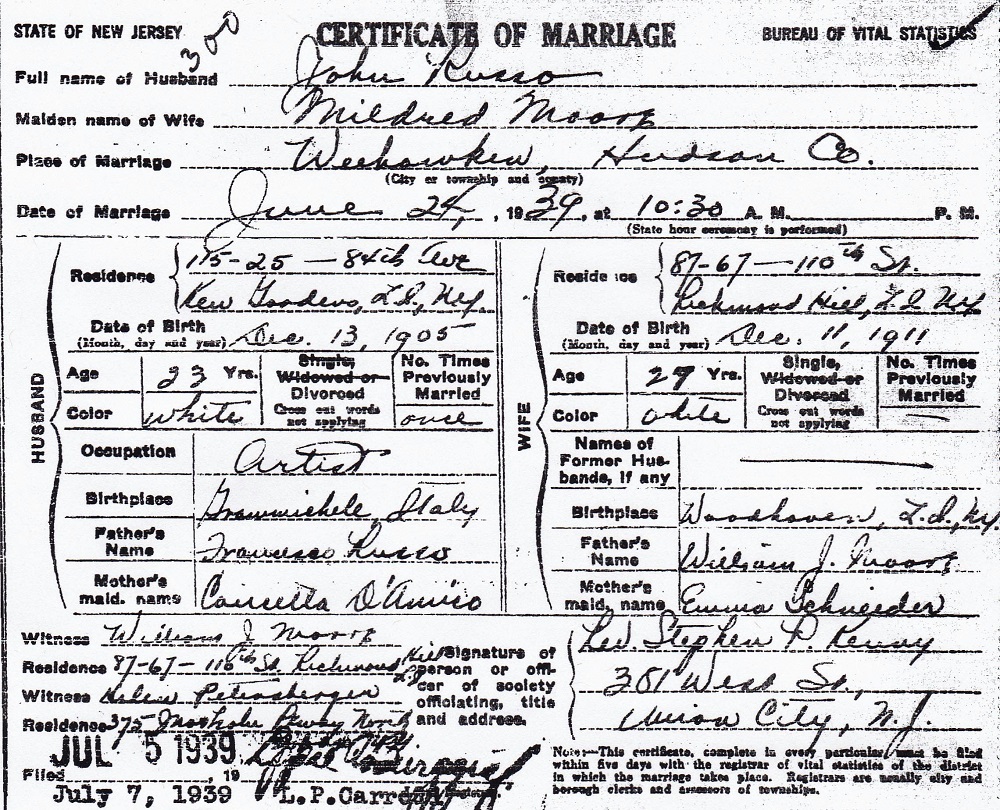 STATE OF NEW JERSEY
300
CERTIFICATE OF MARRIAGE
BUREAU OF VITAL STATISTICS
Full name of Husband John Russo
Maiden name of Wife Mildred Moore
Place of Marriage Weehawken, Hudson Co.
(City or township and county)
Date of Marriage June 24, , 1939, at 10:30 A. M. P. M.
(State hour ceremony is performed)
HUSBAND
Residence 115-25 — 84th Ave
Kew Gardens, L.I., N.Y.
Date of Birth Dec. 13, 1905
(Month, day and year)
Age 33 Yrs.
Single, Widowed or Divorced
Cross out words not applying
No. Times Previously Married
once
Color white
Occupation Artist
Birthplace Grammichele, Italy
Father's Name Francesco Russo
Mother's maid. name Concetta D'Amico
WIFE
Residence 87-67 — 110th St.
Richmond Hill, L.I. N.Y.
Date of Birth Dec. 11, 1911
(Month, day and year)
Age 27 Yrs.
Single, Widowed or Divorced
Cross out words not applying
No. Times Previously Married
—
Color white
Names of Former Husbands, if any
Birthplace Woodhaven, L.I., N.Y.
Father's Name William J. Moore
Mother's maid. name Emma Schneider
Witness William J Moore
Residence 87-67-110th St. Richmond Hill L.I.
Witness Helen Petersberger
Residence 375 Parkway North
Signature of person or officer of society officiating, title and address.
Rev. Stephen P. Kenny
381 West St.,
Union City, N.J.
JUL 5 1939
Filed , 19
July 7, 1939 L.P.
Note:—This certificate, complete in every particular, must be filed
within five days with the registrar of vital statistics of the district
in which the marriage takes place. Registrars are usually city and
borough clerks and assessors of townships.